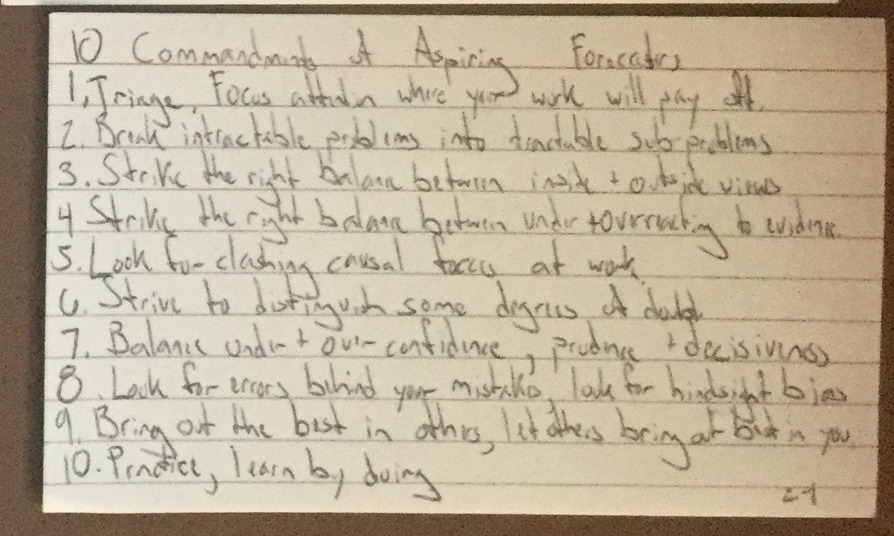 10 Commandments of Aspiring Forecasters
1. Triage. Focus attention where your work will pay off.
2. Break intractable problems into tractable sub problems
3. Strike the right balance between inside + outside views
4 Strike the right balance between under + overreacting to evidence.
5. Look for clashing causal forces at work.
6. Strive to distinguish some degrees of doubt
7. Balance under + over confidence, prudence + decisiveness
8. Look for errors behind your mistakes, look for hindsight bias
9. Bring out the best in others, let others bring out best in you.
10. Practice, learn by doing